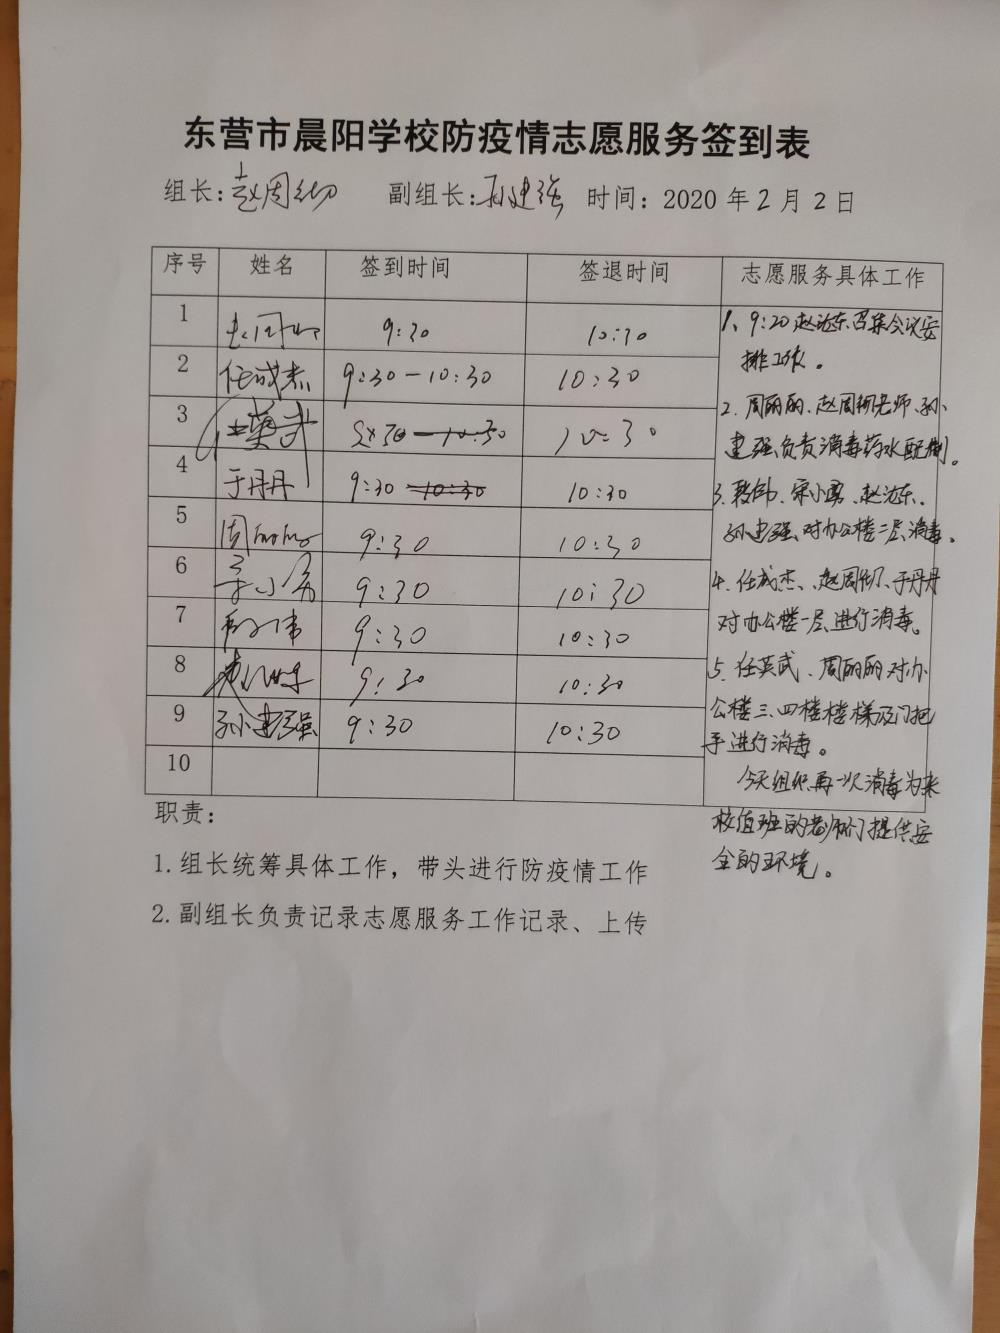 东营市晨阳学校防疫情志愿服务签到表
组长: 赵周 副组长: 孙建强 时间: 2020 年 2 月 2 日
序号 姓名 签到时间 签退时间 志愿服务具体工作
1 9:30 10:30
2 任成杰 9:30-10:30 10:30
3 任英武 10:30
4 于丹丹 9:30 10:30
5 周丽丽 9:30 10:30
6 宋小勇 9:30 10:30
7 9:30 10:30
8 9:30 10:30
9 孙建强 9:30 10:30
10
1、9:20 赵 东召集会议安
排工作。
2. 周丽丽、赵周 老师、孙
建强负责消毒药水配制。
3. 宋小勇、赵 东、
孙建强、对办公楼二层消毒。
4. 任成杰、赵周 、于丹丹
对办公楼一层进行消毒。
5. 任英武、周丽丽对办
公楼三、四楼楼梯及门把
手进行消毒。
今天组织再一次消毒为来
校值班的老师们提供安
全的环境。
职责:
1.组长统筹具体工作，带头进行防疫情工作
2.副组长负责记录志愿服务工作记录、上传